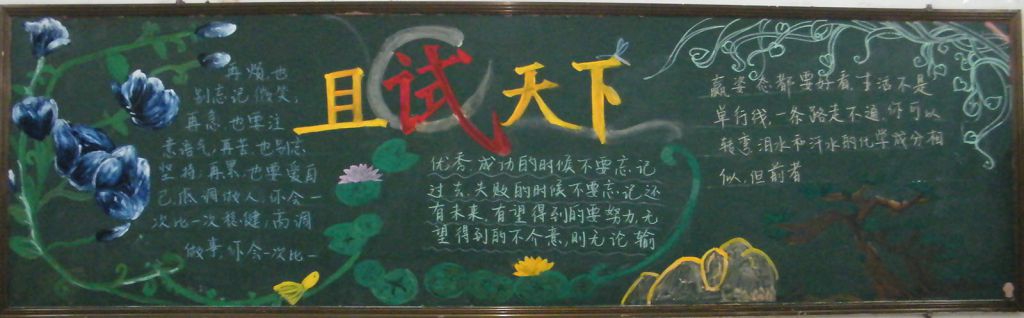 且试天下
再烦，也
别忘记微笑，
再急，也要注
意语气，再苦，也别忘
坚持，再累，也要爱自
己。低调做人，你会一
次比一次稳健，高调
做事，你会一次比一
优秀，成功的时候不要忘记
过去，失败的时候不要忘记还
有未来，有望得到的要努力，无
望得到的不介意，则无论输
赢姿态都要好看，生活不是
单行线，一条路走不通，你可以
转弯，泪水和汗水的化学成分相
似，但前者